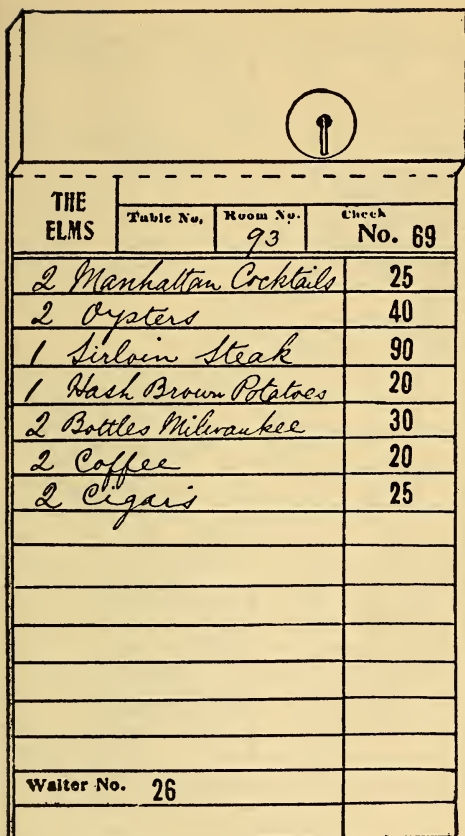 THE ELMS
Table No. Room No. Check
93 No. 69
2 Manhattan Cocktails 25
2 Oysters 40
1 Sirloin Steak 90
1 Hash Brown Potatoes 20
2 Bottles Milwaukee 30
2 Coffee 20
2 Cigars 25
Waiter No. 26